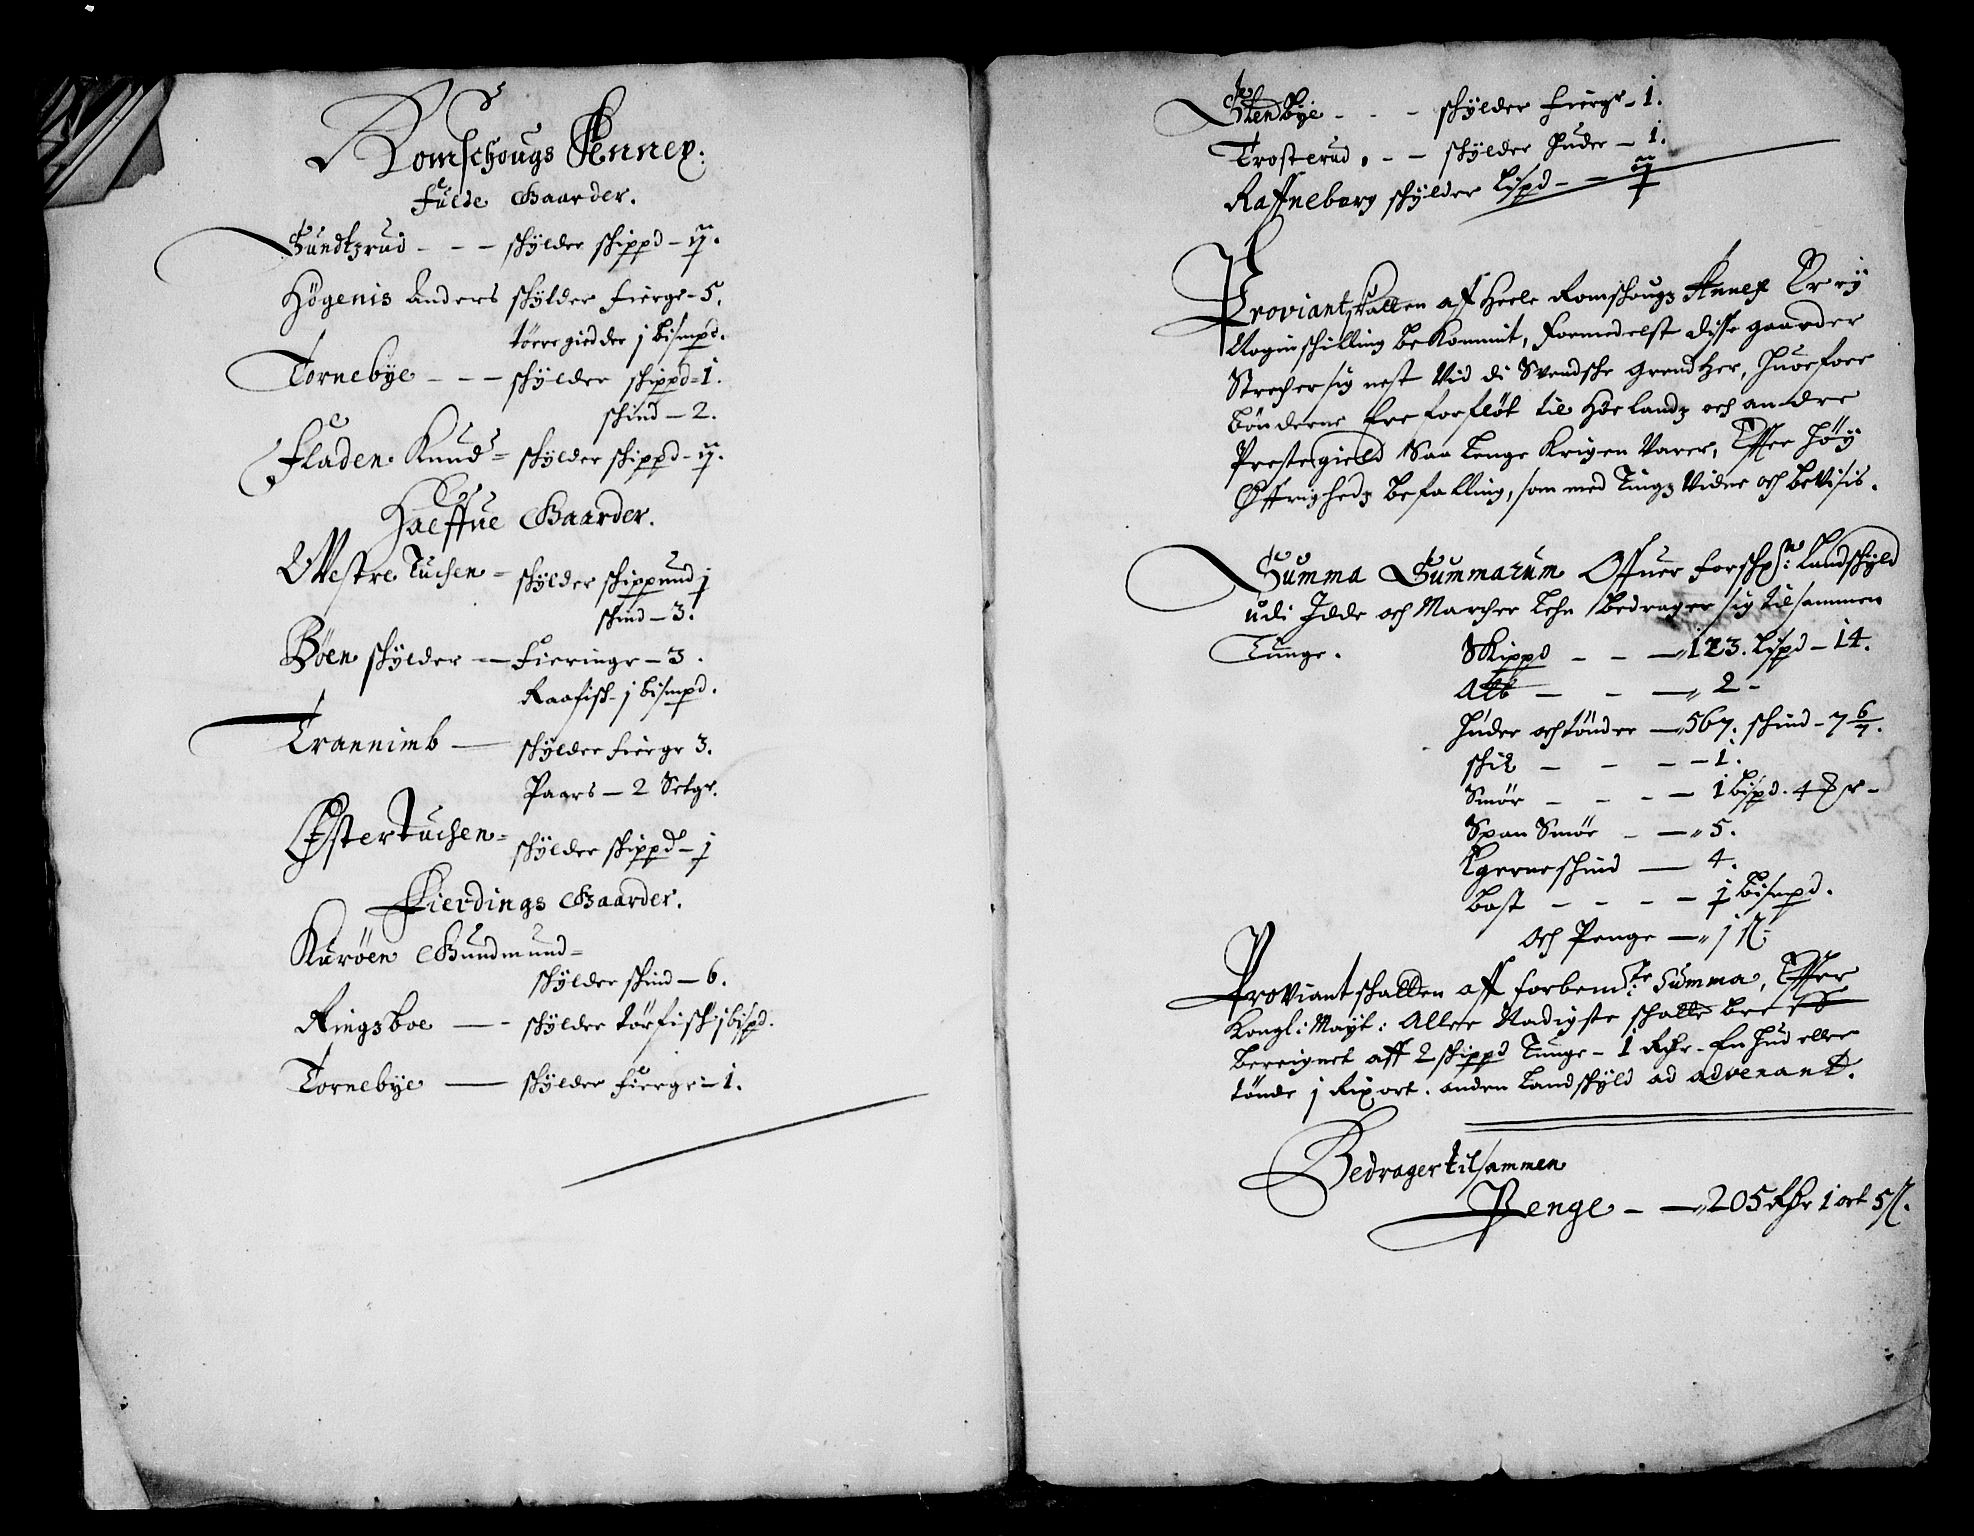 Romschougs Annex:
Fulde Gaarder.
Sundtzrud - - - schylder schippd - ij.
Högenis Anders schylder fierge - 5.
törre giedder j bismpd.
Tornebÿe - - - schylder schippd = 1.
schind - 2.
Fladen Knud = schylder schippd - ij.
Halffue Gaarder.
Westre Tuchen = schylder schippund j
schind - 3.
Böen schylder - Fieringr - 3.
Raafisch - j bismpd.
Trannimb - schylder fiergr 3.
Paars - 2 Setgr.
Østertuchen = schylder schippd - j
Fierdings Gaarder.
Kuröen Gudmund =
schylder schind - 6.
Ringsboe - - schylder törfisch j bispd.
Tornebÿe - schylder fiergr - 1.
Stenbÿe - - - schylder fiergr - 1.
Trosterud. - - schylder huder - 1.
Raffneberg schylder Lispd - - ij
Proviantschatten aff Heele Romschougs Annex Er ej
Nogin schilling bekommit, formedelst disse gaarder
Strecher sig nest Vid di Svendsche grendtzer, huorfore
bönderne ere forflöt til Höelandz och andre
Prestegield Saa lenge Krigen Varer, Effter höÿ
Øffrighedz befalling, som med Tingz Vidne och beVisis.
Summa Summarum Offuer forschr: Landschÿld
udi Idde och Marcher Lehn bedrager sig tilsammen
Tunge. Skippd - - - 123. Lispd - 14.
Alb - - - 2 -
Huder och tönder - 567. schind - 7 6/7.
schil - - - 1.
Smör - - - - 1 bispd. 4
Span Smör - - 5.
Kgerneschind - 4.
bast - - - - j bismpd.
och Penge - j ß
Proviantschatten aff forbemte: Summa, Effter
Kongl: Mayt: Aller Nadigste schatte breff
bereignet aff 2 schippd Tunge - 1 Rdr - En hud eller
tönde j Rixort. anden Landschÿld ad advenant.
Bedrager tilsammen
Penge - - 205 Rdr 1 ort 5 ß.